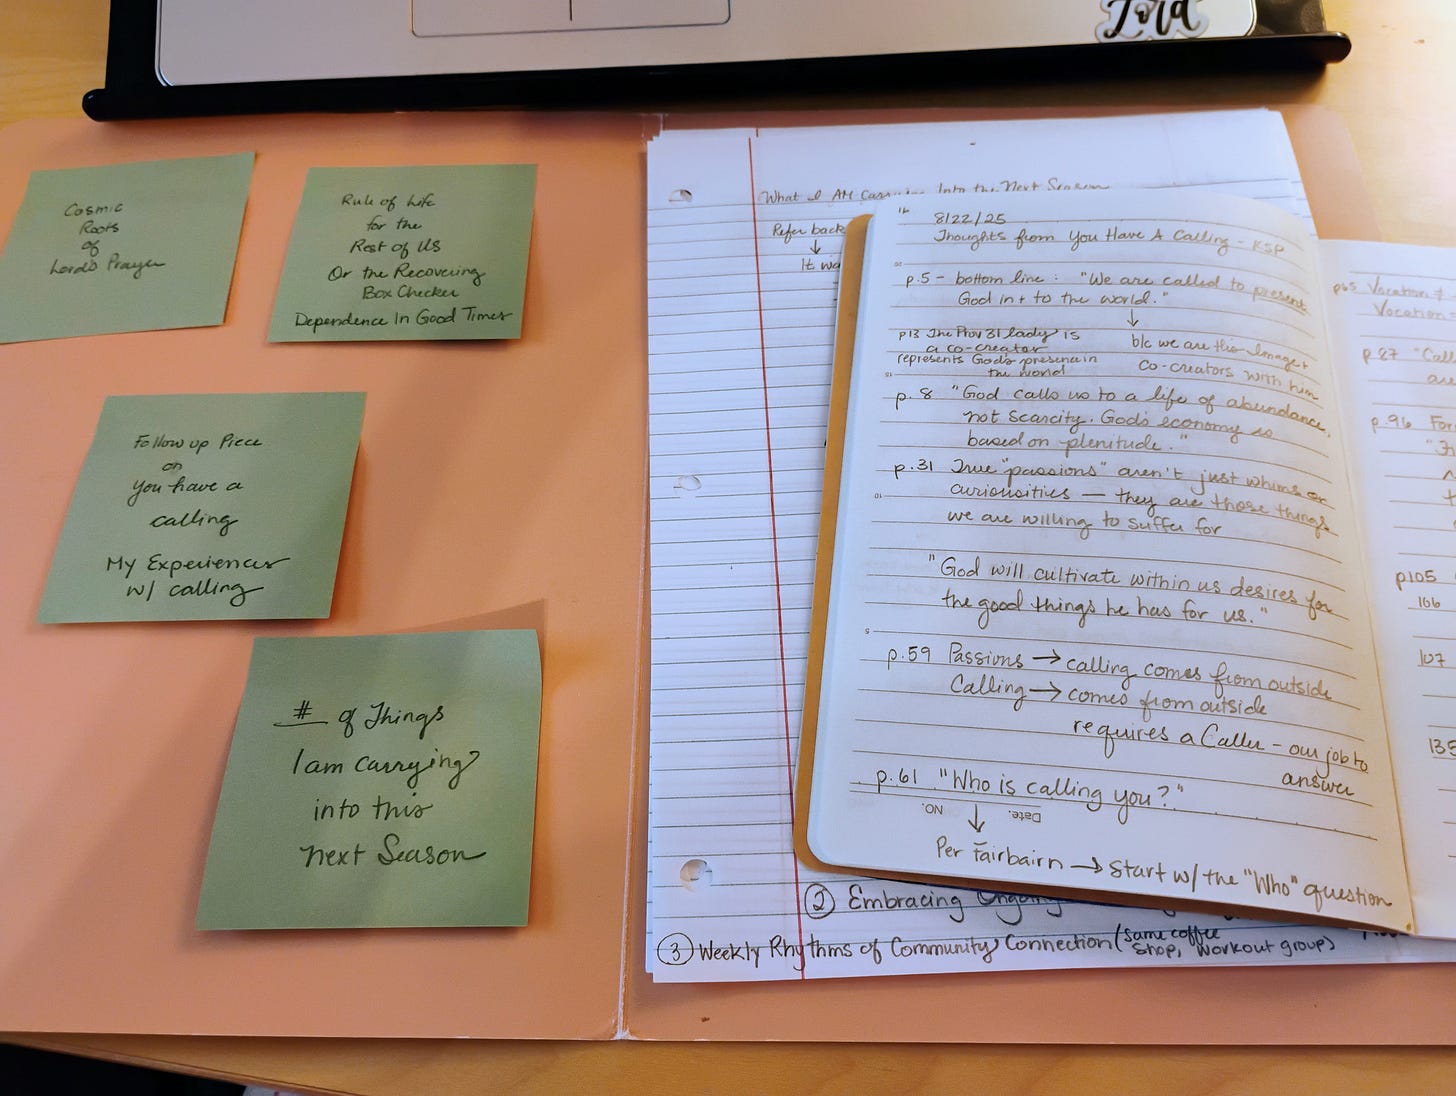 Lord
Cosmic
Roots
of
Lord's Prayer
Rule of Life
for the
Rest of Us
Or the Recovering
Box Checker
Dependence In Good Times
Follow up Piece
on
You have a
calling
My Experiences
w/ calling
# of Things
I am carrying
into this
next Season
What I AM Into the Next Season
Refer back
↓
It
8/22/25
Thoughts from You Have A Calling - KSP
p.5 - bottom line: "We are called to present
God in + to the world."
↓
b/c we are the Image +
co-creators with him
p13 The Prov 31 lady is
a co-creator
represents God's presence in
the world
p. 8 "God calls us to a life of abundance,
not scarcity. God's economy is
based on plenitude."
p.31 True "passions" aren't just whims or
curiousities — they are those things
we are willing to suffer for
"God will cultivate within us desires for
the good things he has for us."
p.59 Passions → calling comes from outside
Calling → comes from outside
requires a Caller - our job to
answer
p.61 "Who is calling you?"
Date.
NO.
↓
Per Fairbairn → Start w/ the "Who" question
② Embracing
③ Weekly Rhythms of Community Connection (same coffee
shop, workout group)
p65 Vocation
Vocation =
p.87
are
p.96
p105
106
107
135